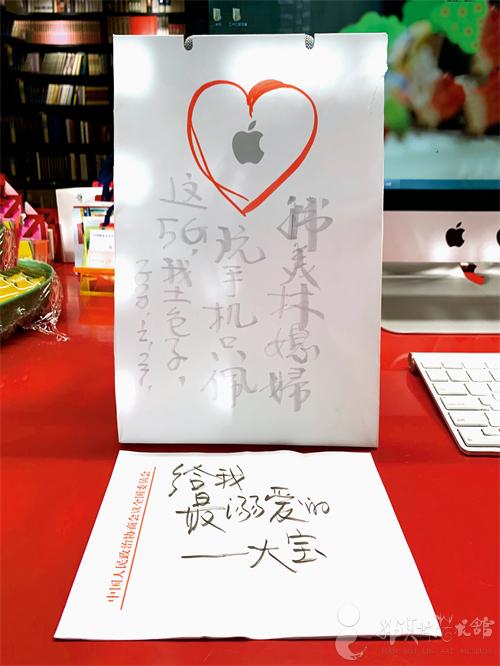 韩美林媳婦
玩手机只佩
这5G,我土包子,
2020.12.27.
给我
最溺爱的
——大宝
中国人民政治协商会议全国委员会
韩美林艺术馆
HAN MEI LIN ART MUSEUM